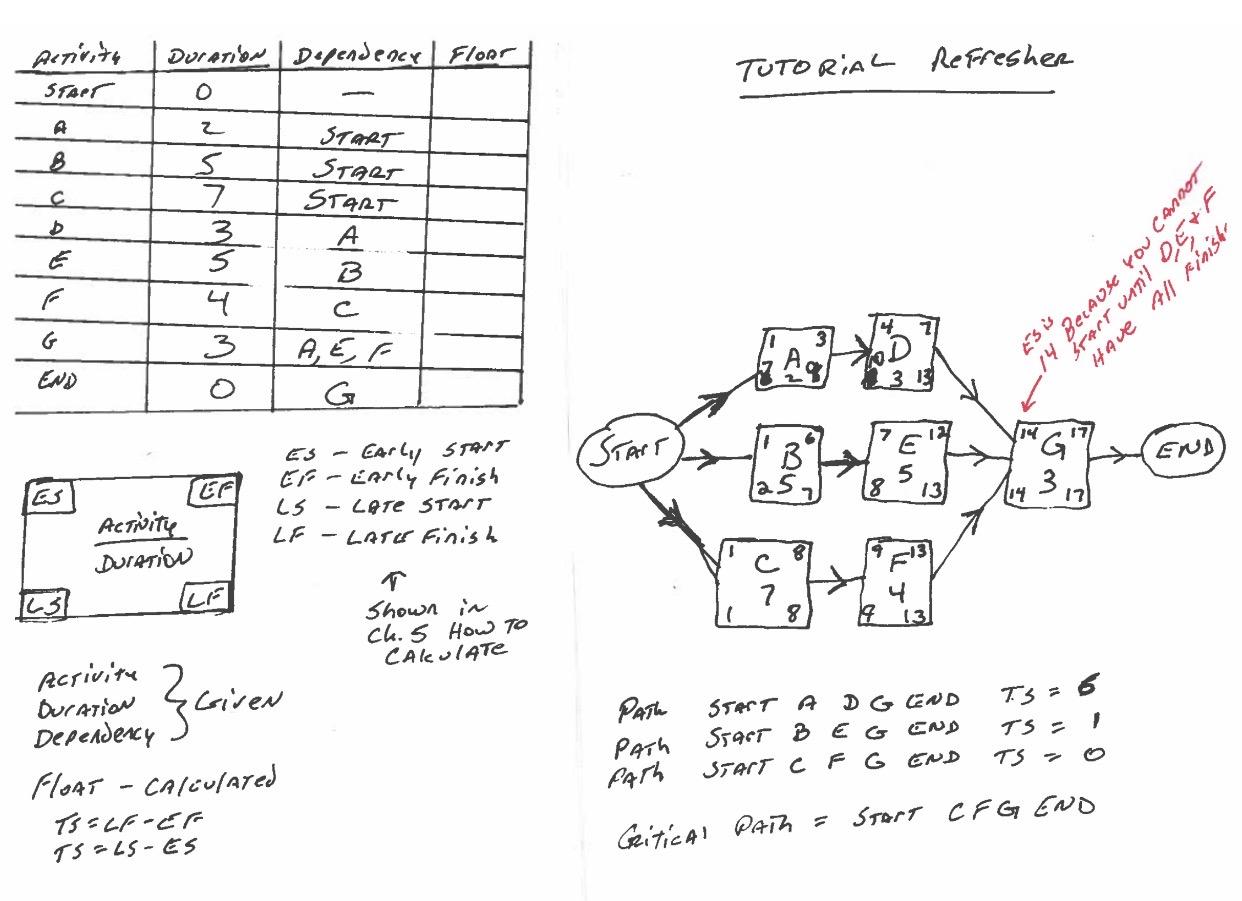 Activity Duration Dependency Float
START 0 —
A 2 START
B 5 START
C 7 START
D 3 A
E 5 B
F 4 C
G 3 A, E, F
END 0 G
ES - Early START
EF - Early Finish
LS - LATE START
LF - LATE Finish
↑
Shown in
Ch. 5 How To
CALCULATE
ES EF
Activity
DURATION
LS LF
Activity
Duration
Dependency
} Given
Float - Calculated
TS = LF - EF
TS = LS - ES
TUTORIAL Refresher
ES is
14 Because you cannot
START until D, E, & F
HAVE All Finish
START
1 3
A
7 2
4 7
D
10 3 13
1 6
B
2 5 7
7 12
E
5
8 13
1 8
C
7
1 8
9 13
F
4
9 13
14 17
G
3
14 17
END
Path START A D G END TS = 6
Path START B E G END TS = 1
Path START C F G END TS = 0
Critical Path = START C F G END